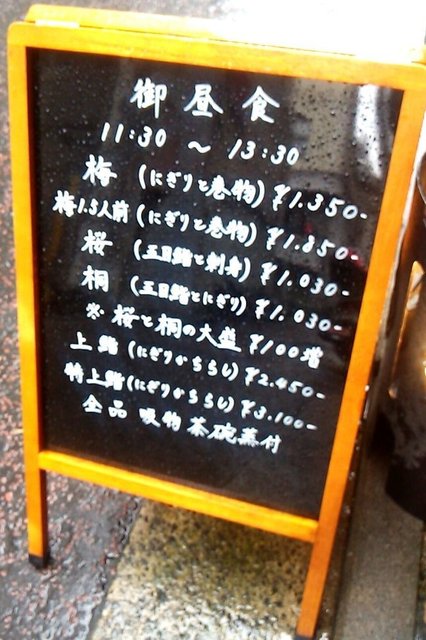 御昼食
11:30 ～ 13:30
梅 (にぎりと巻物) ¥1.350-
梅1.5人前 (にぎりと巻物) ¥1.850-
桜 (五目鮨と刺身) ¥1.030-
桐 (五目鮨とにぎり) ¥1.030-
※ 桜と桐の大盛 ¥100増
上鮨 (にぎりかちらし) ¥2.450-
特上鮨 (にぎりかちらし) ¥3.100-
全品 吸物 茶碗蒸付